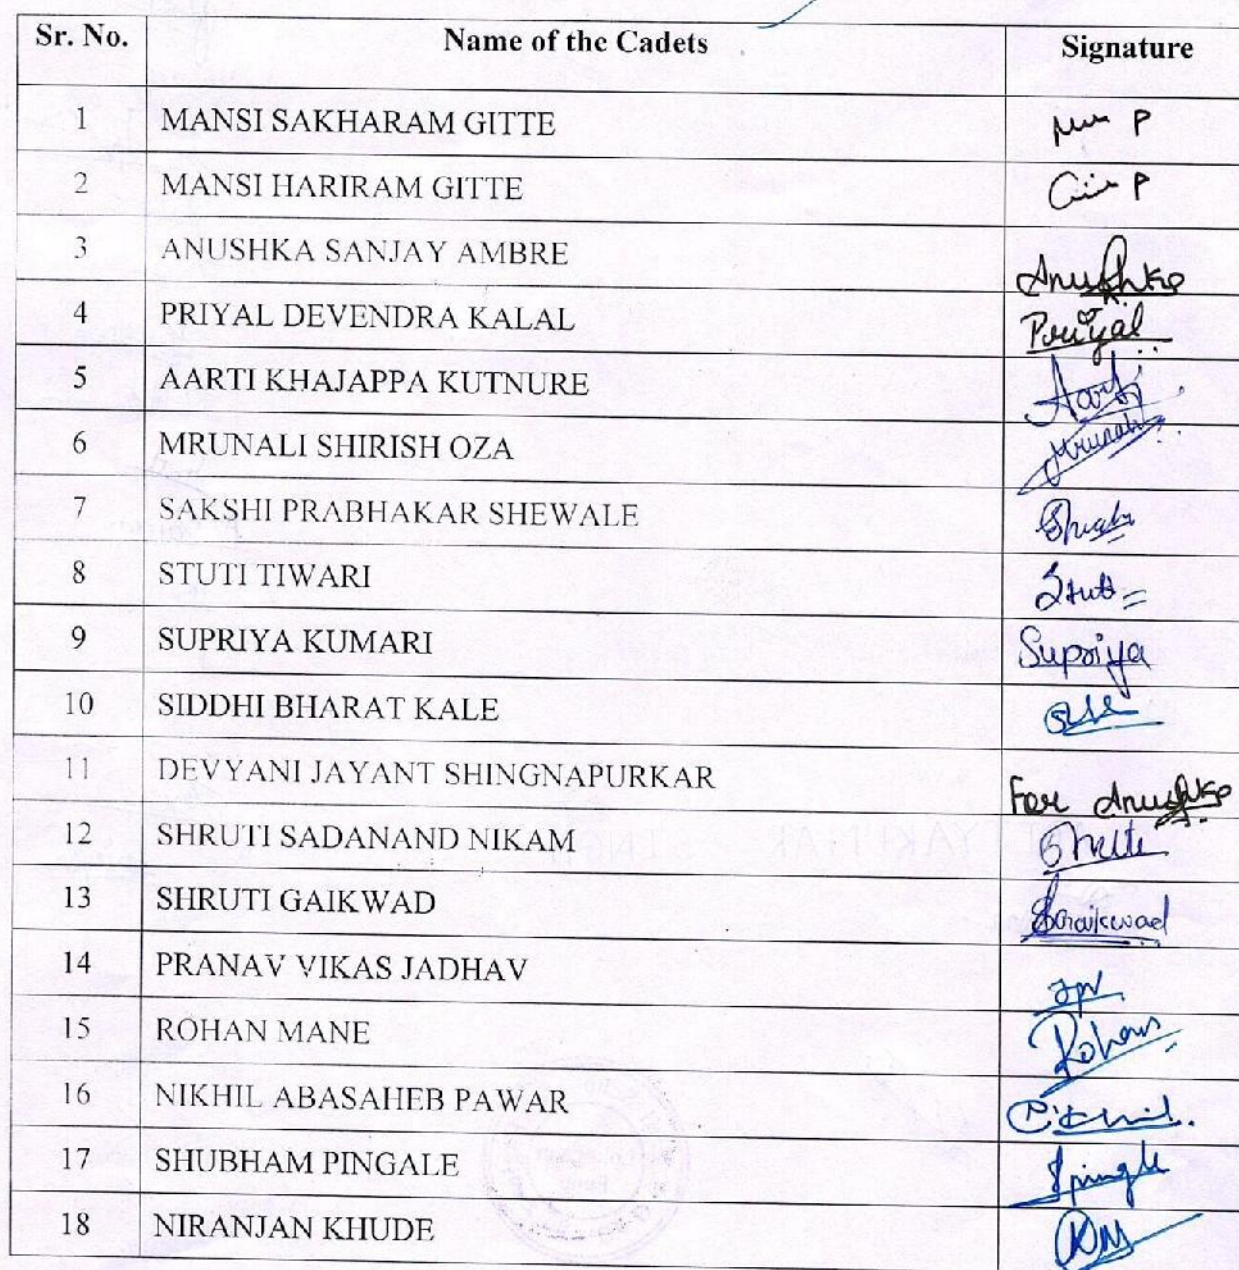 Sr. No. Name of the Cadets Signature
1 MANSI SAKHARAM GITTE P
2 MANSI HARIRAM GITTE P
3 ANUSHKA SANJAY AMBRE Anushka
4 PRIYAL DEVENDRA KALAL Priyal
5 AARTI KHAJAPPA KUTNURE Aarti
6 MRUNALI SHIRISH OZA Mrunali
7 SAKSHI PRABHAKAR SHEWALE
8 STUTI TIWARI Stuti
9 SUPRIYA KUMARI Supriya
10 SIDDHI BHARAT KALE
11 DEVYANI JAYANT SHINGNAPURKAR For Anushka
12 SHRUTI SADANAND NIKAM
13 SHRUTI GAIKWAD SGaikwad
14 PRANAV VIKAS JADHAV
15 ROHAN MANE Rohan
16 NIKHIL ABASAHEB PAWAR
17 SHUBHAM PINGALE Spingle
18 NIRANJAN KHUDE